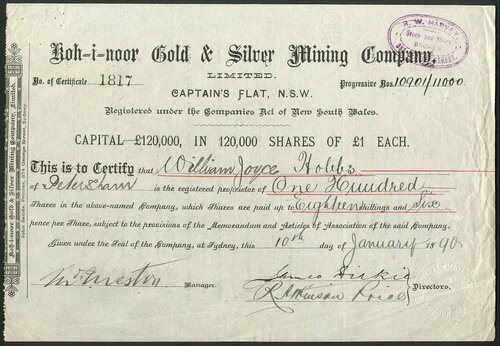 R. W. HARVEY
Stock and Share
BROKER
STREET.
Koh-i-noor Gold & Silver Mining Company,
LIMITED.
No. of Certificate 1817
Progressive Nos. 10901/11000
CAPTAIN'S FLAT, N.S.W.
Registered under the Companies Act of New South Wales.
CAPITAL £120,000, IN 120,000 SHARES OF £1 EACH.
This is to Certify that William Joyce Hobbs
of Petersham is the registered proprietor of One Hundred
Shares in the above-named Company, which Shares are paid up to Eighteen shillings and Six
pence per Share, subject to the provisions of the Memorandum and Articles of Association of the said Company.
Given under the Seal of the Company, at Sydney, this 10th day of January 1890
Manager.
Directors.
Koh-i-noor Gold & Silver Mining Company, Limited.
John Sands, Printer, 374 George Street, Sydney.